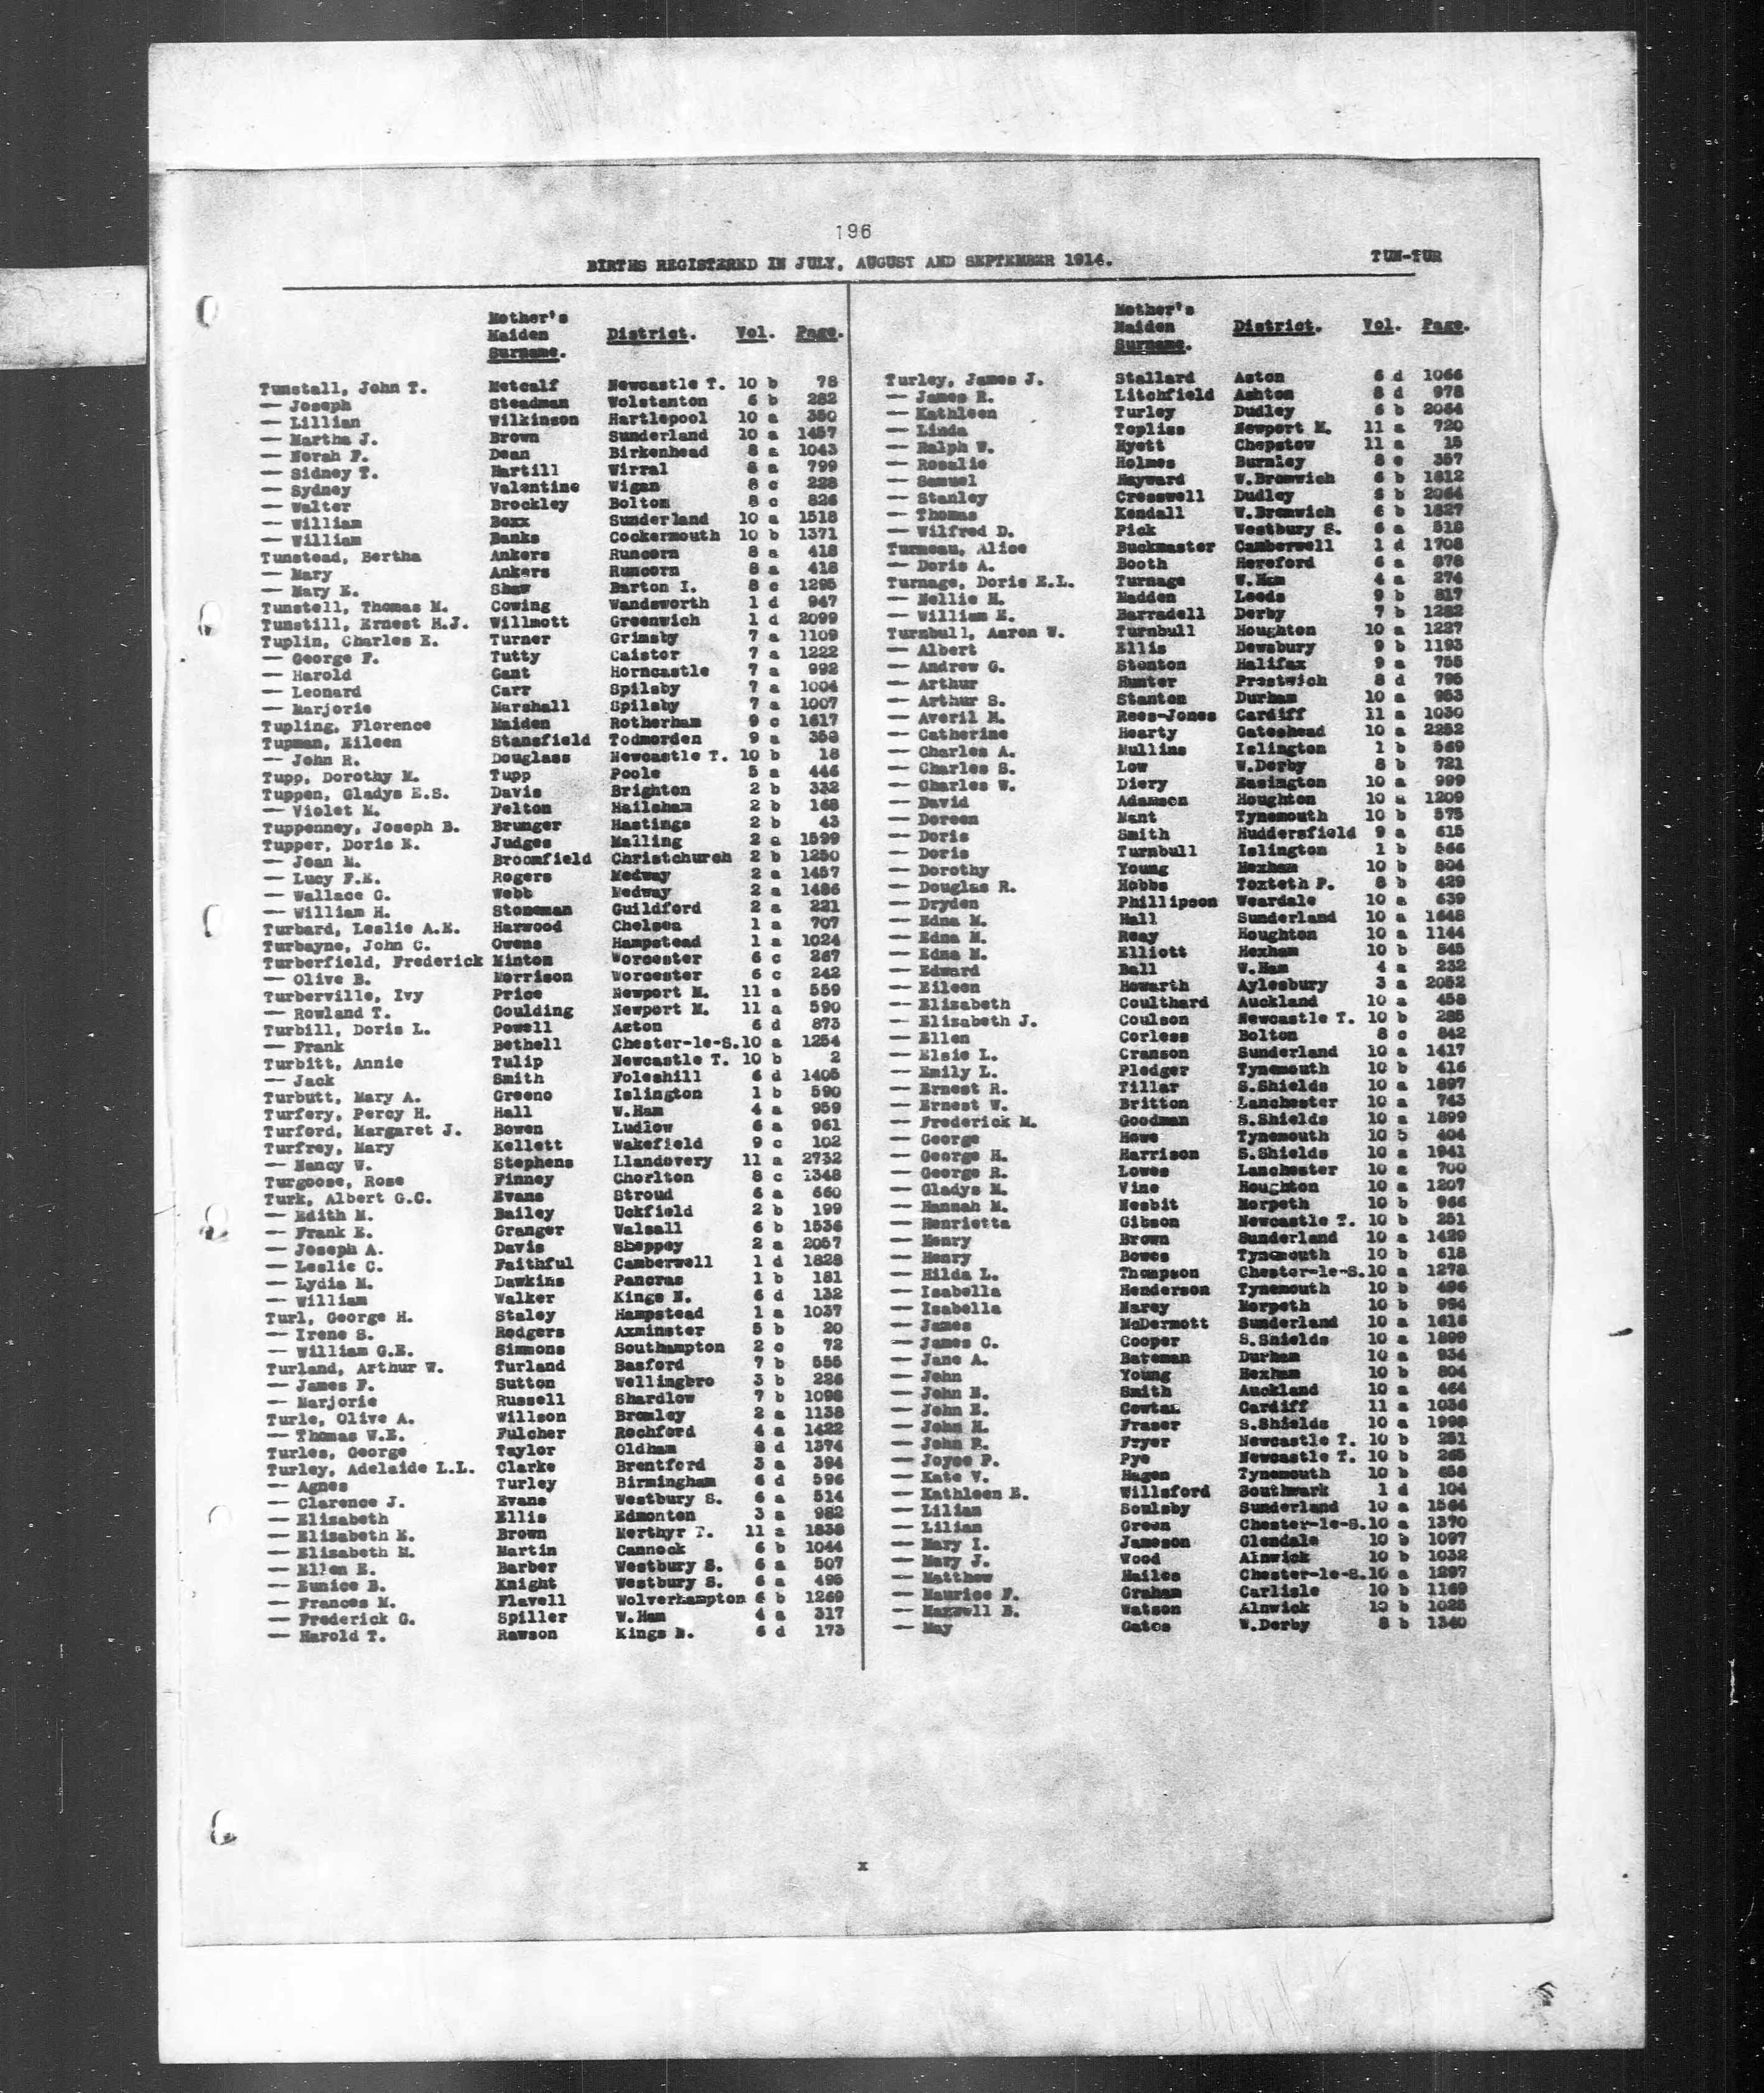 196
BIRTHS REGISTERED IN JULY, AUGUST AND SEPTEMBER 1914. TUN-TUR
Mother's
Maiden District. Vol. Page.
Surname.
Tunstall, John T. Metcalf Newcastle T. 10 b 78
— Joseph Steadman Wolstanton 6 b 282
— Lillian Wilkinson Hartlepool 10 a 350
— Martha J. Brown Sunderland 10 a 1457
— Norah F. Dean Birkenhead 8 a 1043
— Sidney T. Hartill Wirral 8 a 799
— Sydney Valentine Wigan 8 c 228
— Walter Brockley Bolton 8 c 826
— William Boxx Sunderland 10 a 1518
— William Banks Cockermouth 10 b 1371
Tunstead, Bertha Ankers Runcorn 8 a 418
— Mary Ankers Runcorn 8 a 418
— Mary E. Shaw Barton I. 8 c 1295
Tunstell, Thomas M. Cowing Wandsworth 1 d 947
Tunstill, Ernest H.J. Willmott Greenwich 1 d 2099
Tuplin, Charles E. Turner Grimsby 7 a 1109
— George F. Tutty Caistor 7 a 1222
— Harold Gant Horncastle 7 a 992
— Leonard Carr Spilsby 7 a 1004
— Marjorie Marshall Spilsby 7 a 1007
Tupling, Florence Maiden Rotherham 9 c 1617
Tupman, Eileen Stansfield Todmorden 9 a 353
— John R. Douglass Newcastle T. 10 b 18
Tupp, Dorothy M. Tupp Poole 5 a 446
Tuppen, Gladys E.S. Davis Brighton 2 b 332
— Violet M. Felton Hailsham 2 b 168
Tuppenney, Joseph B. Brunger Hastings 2 b 43
Tupper, Doris E. Judges Malling 2 a 1599
— Jean M. Broomfield Christchurch 2 b 1250
— Lucy F.E. Rogers Medway 2 a 1457
— Wallace G. Webb Medway 2 a 1486
— William H. Stoneman Guildford 2 a 221
Turbard, Leslie A.E. Harwood Chelsea 1 a 707
Turbayne, John C. Owens Hampstead 1 a 1024
Turberfield, Frederick Minton Worcester 6 c 267
— Olive B. Morrison Worcester 6 c 242
Turberville, Ivy Price Newport M. 11 a 559
— Rowland T. Goulding Newport M. 11 a 590
Turbill, Doris L. Powell Aston 6 d 873
— Frank Bethell Chester-le-S. 10 a 1254
Turbitt, Annie Tulip Newcastle T. 10 b 2
— Jack Smith Foleshill 6 d 1405
Turbutt, Mary A. Greeno Islington 1 b 590
Turfery, Percy H. Hall W.Ham 4 a 959
Turford, Margaret J. Bowen Ludlow 6 a 961
Turfrey, Mary Kellett Wakefield 9 c 102
— Nancy W. Stephens Llandovery 11 a 2732
Turgoose, Rose Finney Chorlton 8 c 1348
Turk, Albert G.C. Evans Stroud 6 a 660
— Edith M. Bailey Uckfield 2 b 199
— Frank E. Granger Walsall 6 b 1536
— Joseph A. Davis Sheppey 2 a 2057
— Leslie C. Faithful Camberwell 1 d 1828
— Lydia M. Dawkins Pancras 1 b 181
— William Walker Kings N. 6 d 132
Turl, George H. Staley Hampstead 1 a 1037
— Irene S. Rodgers Axminster 5 b 20
— William G.E. Simmons Southampton 2 c 72
Turland, Arthur W. Turland Basford 7 b 555
— James F. Sutton Wellingbro 3 b 226
— Marjorie Russell Shardlow 7 b 1098
Turle, Olive A. Willson Bromley 2 a 1138
— Thomas W.E. Fulcher Rochford 4 a 1422
Turles, George Taylor Oldham 8 d 1374
Turley, Adelaide L.L. Clarke Brentford 3 a 394
— Agnes Turley Birmingham 6 d 596
— Clarence J. Evans Westbury S. 6 a 514
— Elizabeth Ellis Edmonton 3 a 982
— Elizabeth E. Brown Merthyr T. 11 a 1838
— Elizabeth M. Martin Cannock 6 b 1044
— Ellen E. Barber Westbury S. 6 a 507
— Eunice B. Knight Westbury S. 6 a 495
— Frances M. Flavell Wolverhampton 6 b 1269
— Frederick G. Spiller W.Ham 4 a 317
— Harold T. Rawson Kings N. 6 d 173
Mother's
Maiden District. Vol. Page.
Surname.
Turley, James J. Stallard Aston 6 d 1066
— James R. Litchfield Ashton 8 d 978
— Kathleen Turley Dudley 6 b 2064
— Linda Topliss Newport M. 11 a 720
— Ralph W. Hyett Chepstow 11 a 15
— Rosalie Holmes Burnley 8 e 357
— Samuel Hayward W.Bromwich 6 b 1812
— Stanley Cresswell Dudley 6 b 2064
— Thomas Kendall W.Bromwich 6 b 1827
— Wilfred D. Pick Westbury S. 6 a 518
Turneau, Alice Buckmaster Camberwell 1 d 1708
— Doris A. Booth Hereford 6 a 878
Turnage, Doris E.L. Turnage W.Ham 4 a 274
— Nellie H. Madden Leeds 9 b 817
— William E. Barradell Derby 7 b 1282
Turnbull, Aaron W. Turnbull Houghton 10 a 1227
— Albert Ellis Dewsbury 9 b 1193
— Andrew G. Stenton Halifax 9 a 755
— Arthur Hunter Prestwich 8 d 795
— Arthur S. Stanton Durham 10 a 953
— Averil M. Rees-Jones Cardiff 11 a 1030
— Catherine Hearty Gateshead 10 a 2252
— Charles A. Mullins Islington 1 b 569
— Charles S. Low W.Derby 8 b 721
— Charles W. Diery Easington 10 a 999
— David Adamson Houghton 10 a 1209
— Doreen Nant Tynemouth 10 b 575
— Doris Smith Huddersfield 9 a 615
— Doris Turnbull Islington 1 b 566
— Dorothy Young Hexham 10 b 804
— Douglas R. Hobbs Toxteth P. 8 b 429
— Dryden Phillipson Weardale 10 a 639
— Edna M. Hall Sunderland 10 a 1648
— Edna M. Reay Houghton 10 a 1144
— Edna M. Elliott Hexham 10 b 845
— Edward Ball W.Ham 4 a 232
— Eileen Howarth Aylesbury 3 a 2052
— Elizabeth Coulthard Auckland 10 a 458
— Elizabeth J. Coulson Newcastle T. 10 b 285
— Ellen Corless Bolton 8 c 842
— Elsie L. Cranson Sunderland 10 a 1417
— Emily L. Pledger Tynemouth 10 b 416
— Ernest R. Tillar S.Shields 10 a 1897
— Ernest W. Britton Lanchester 10 a 743
— Frederick M. Goodman S.Shields 10 a 1899
— George Howe Tynemouth 10 b 404
— George H. Harrison S.Shields 10 a 1941
— George R. Lowes Lanchester 10 a 700
— Gladys M. Vine Houghton 10 a 1207
— Hannah M. Nesbit Morpeth 10 b 966
— Henrietta Gibson Newcastle T. 10 b 251
— Henry Brown Sunderland 10 a 1429
— Henry Bowes Tynemouth 10 b 618
— Hilda L. Thompson Chester-le-S. 10 a 1278
— Isabella Henderson Tynemouth 10 b 496
— Isabella Narey Morpeth 10 b 994
— James McDermott Sunderland 10 a 1616
— James C. Cooper S.Shields 10 a 1899
— Jane A. Bateman Durham 10 a 934
— John Young Hexham 10 b 804
— John E. Smith Auckland 10 a 464
— John E. Cardiff 11 a 1036
— John H. Fraser S.Shields 10 a 1998
— John R. Fryer Newcastle T. 10 b 251
— Joyce P. Pye Newcastle T. 10 b 265
— Kate V. Hagen Tynemouth 10 b 658
— Kathleen E. Willsford Southwark 1 d 104
— Lilian Soulsby Sunderland 10 a 1566
— Lilian Green Chester-le-S. 10 a 1370
— Mary I. Jameson Glendale 10 b 1097
— Mary J. Wood Alnwick 10 b 1032
— Matthew Hailes Chester-le-S. 10 a 1297
— Maurice F. Graham Carlisle 10 b 1169
— Maxwell B. Watson Alnwick 10 b 1025
— May Gates W.Derby 8 b 1340
x